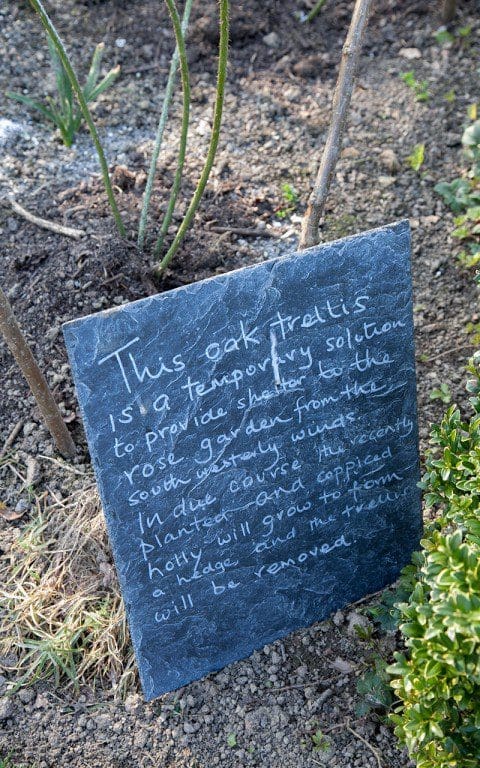 This oak trellis
is a temporary solution
to provide shelter to the
rose garden from the
south westerly winds.
In due course the recently
planted and coppiced
holly will grow to form
a hedge and the trellis
will be removed.